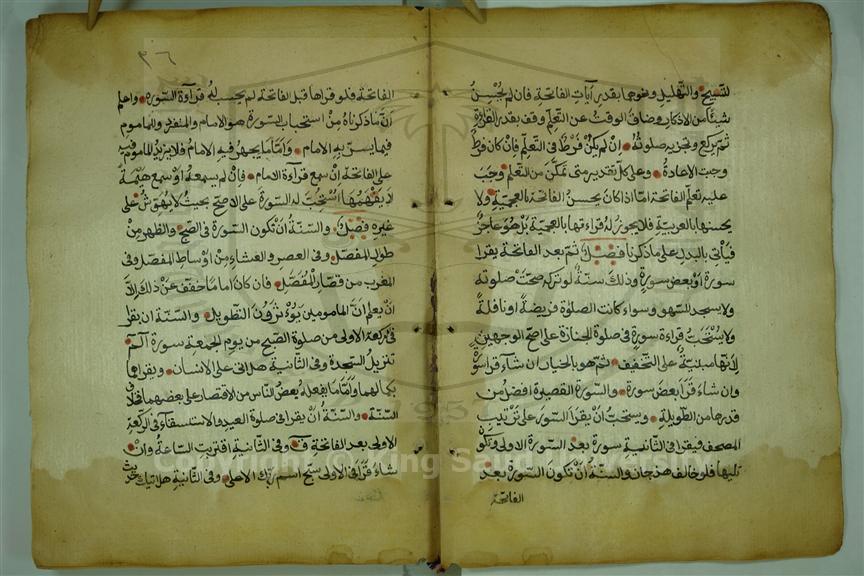 للتسبيح والتهليل ونحوهما بقدر آيات الفاتحة فان لم يحسن
شيئا من الاذكار وضاق الوقت عن التعلم وقف بقدر القراءة
ثم يركع وتجزيه صلوته ان لم يكن فرط في التعلم فان كان فرط
وجبت الاعادة وعلى كل تقدير متى تمكن من التعلم وجب
عليه تعلم الفاتحة اما اذا كان يحسن الفاتحة بالعجمية ولا
يحسنها بالعربية فلا يجوز له قراءتها بالعجمية بل هو عاجز
فيأتي بالبدل على ما ذكرنا فصل ثم بعد الفاتحة يقرا
سورة او بعض سورة وذلك سنة لو تركه صحت صلوته
ولا يسجد للسهو وسواء كانت الصلوة فريضة او نافلة
ولا يستحب قراءة سورة في صلوة الجنازة على اصح الوجهين
لانها مبنية على التخفيف ثم هو بالخيار ان شاء قرا سورة
وان شاء قرا بعض سورة والسورة القصيرة افضل من
قدرها من الطويلة ويستحب ان يقرا السور على ترتيب
المصحف فيقرا في الثانية سورة بعد السورة الاولى وتكون
تليها فلو خالف هذا جاز والسنة ان تكون السورة بعد
الفاتحة
٣٦
الفاتحة فلو قراها قبل الفاتحة لم يحسب له قراءة السورة واعلم
ان ما ذكرناه من استحباب السورة هو الامام والمنفرد والماموم
فيما يسر به الامام واما ما يجهر فيه الامام فلا يزيد الماموم فيه
على الفاتحة ان سمع قراءة الامام فان لم يسمعه او سمع هينمة
لا يفهمها استحبت له السورة على الاصح بحيث لا يهوش على
غيره فصل والسنة ان تكون السورة في الصبح والظهر من
طوال المفصل وفي العصر والعشاء من اوساط المفصل وفي
المغرب من قصار المفصل فان كان اماما خفف عن ذلك الا
ان يعلم ان المامومين يؤثرون التطويل والسنة ان يقرا
في ركعة الاولى من صلوة الصبح من يوم الجمعة سورة آلم
تنزيل السجدة وفي الثانية هل اتى على الانسان ويقراهما
بكمالهما واما ما يفعله بعض الناس من الاقتصار على بعضهما فخلاف
السنة والسنة ان يقرا في صلوة العيد والاستسقاء في الركعة
الاولى بعد الفاتحة ق وفي الثانية اقتربت الساعة وان
شاء قرا في الاولى سبح اسم ربك الاعلى وفي الثانية هل اتيك حديث